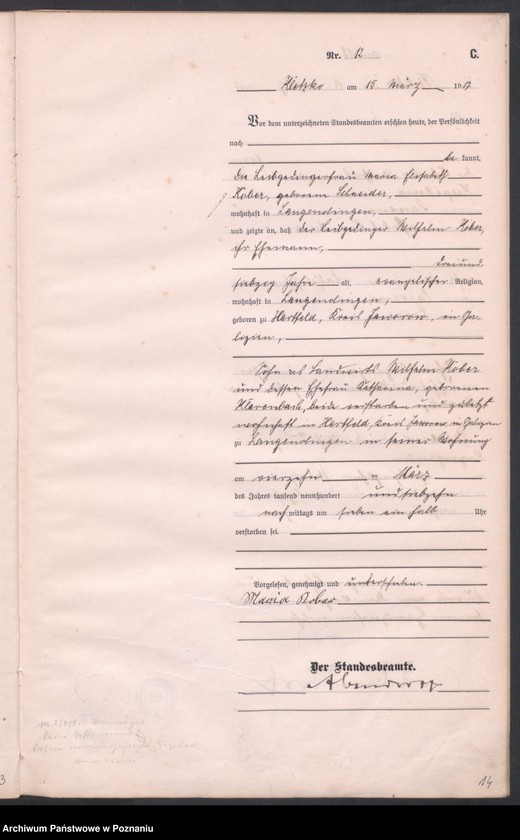 Nr. 12 C.
Kletzko am 15. März 1917
Vor dem unterzeichneten Standesbeamten erschien heute, der Persönlichkeit
nach
be kannt,
die Leibgedingerfrau Maria Elisabeth
Kober, geborene Schneider,
wohnhaft in Langendingen,
und zeigte an, daß der Leibgedinger Wilhelm Kober,
ihr Ehemann,
dreiund
siebzig Jahre alt, evangelischer Religion,
wohnhaft in Langendingen,
geboren zu Hartfeld, Kreis Jaworow, in Ga-
lizien,
Sohn des Landwirts Wilhelm Kober
und dessen Ehefrau Katharina, geborenen
beide verstorben und zuletzt
wohnhaft in Hartfeld, Kreis Jaworow in Galizien
zu Langendingen in seiner Wohnung
am vierzehn März
des Jahres tausend neunhundert und siebzehn
nachmittags um sieben ein halb Uhr
verstorben sei.
Vorgelesen, genehmigt und unterschrieben.
Maria Kober
Der Standesbeamte.
14
Archiwum Państwowe w Poznaniu